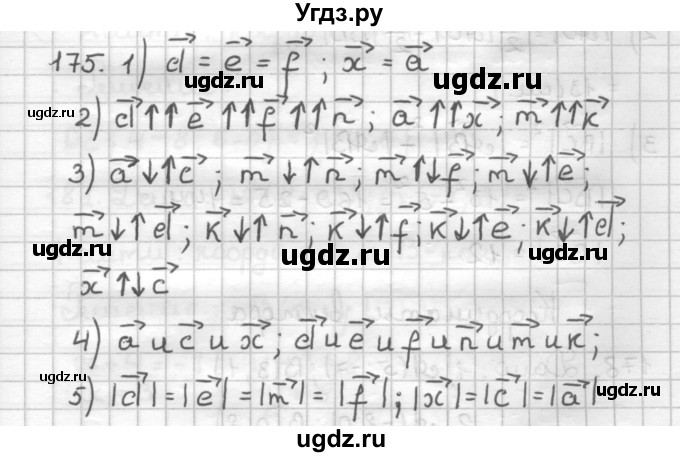 Угдз.ру
175. 1) d⃗ = e⃗ = f⃗ ; x⃗ = a⃗
ugdz.ru ugdz.ru
ugdz.ru
2) d⃗ ↑↑ e⃗ ↑↑ f⃗ ↑↑ n⃗ ; a⃗ ↑↑ x⃗ ; m⃗ ↑↑ k⃗
3) a⃗ ↓↑ c⃗ ; m⃗ ↓↑ n⃗ ; m⃗ ↑↓ f⃗ ; m⃗ ↓↑ e⃗ ;
ugdz.ru ugdz.ru
m⃗ ↓↑ d⃗ ; k⃗ ↓↑ n⃗ ; k⃗ ↓↑ f⃗ ; k⃗ ↓↑ e⃗ ; k⃗ ↓↑ d⃗ ;
ugdz.ru ugdz.ru ugdz.ru
x⃗ ↑↓ c⃗
4) a⃗ и c⃗ и x⃗ ; d⃗ и e⃗ и f⃗ и n⃗ и m⃗ и k⃗ ;
ugdz.ru ugdz.ru
ugdz.ru
5) |d⃗| = |e⃗| = |m⃗| = |f⃗| ; |x⃗| = |c⃗| = |a⃗|
ugdz.ru ugdz.ru
ugdz.ru